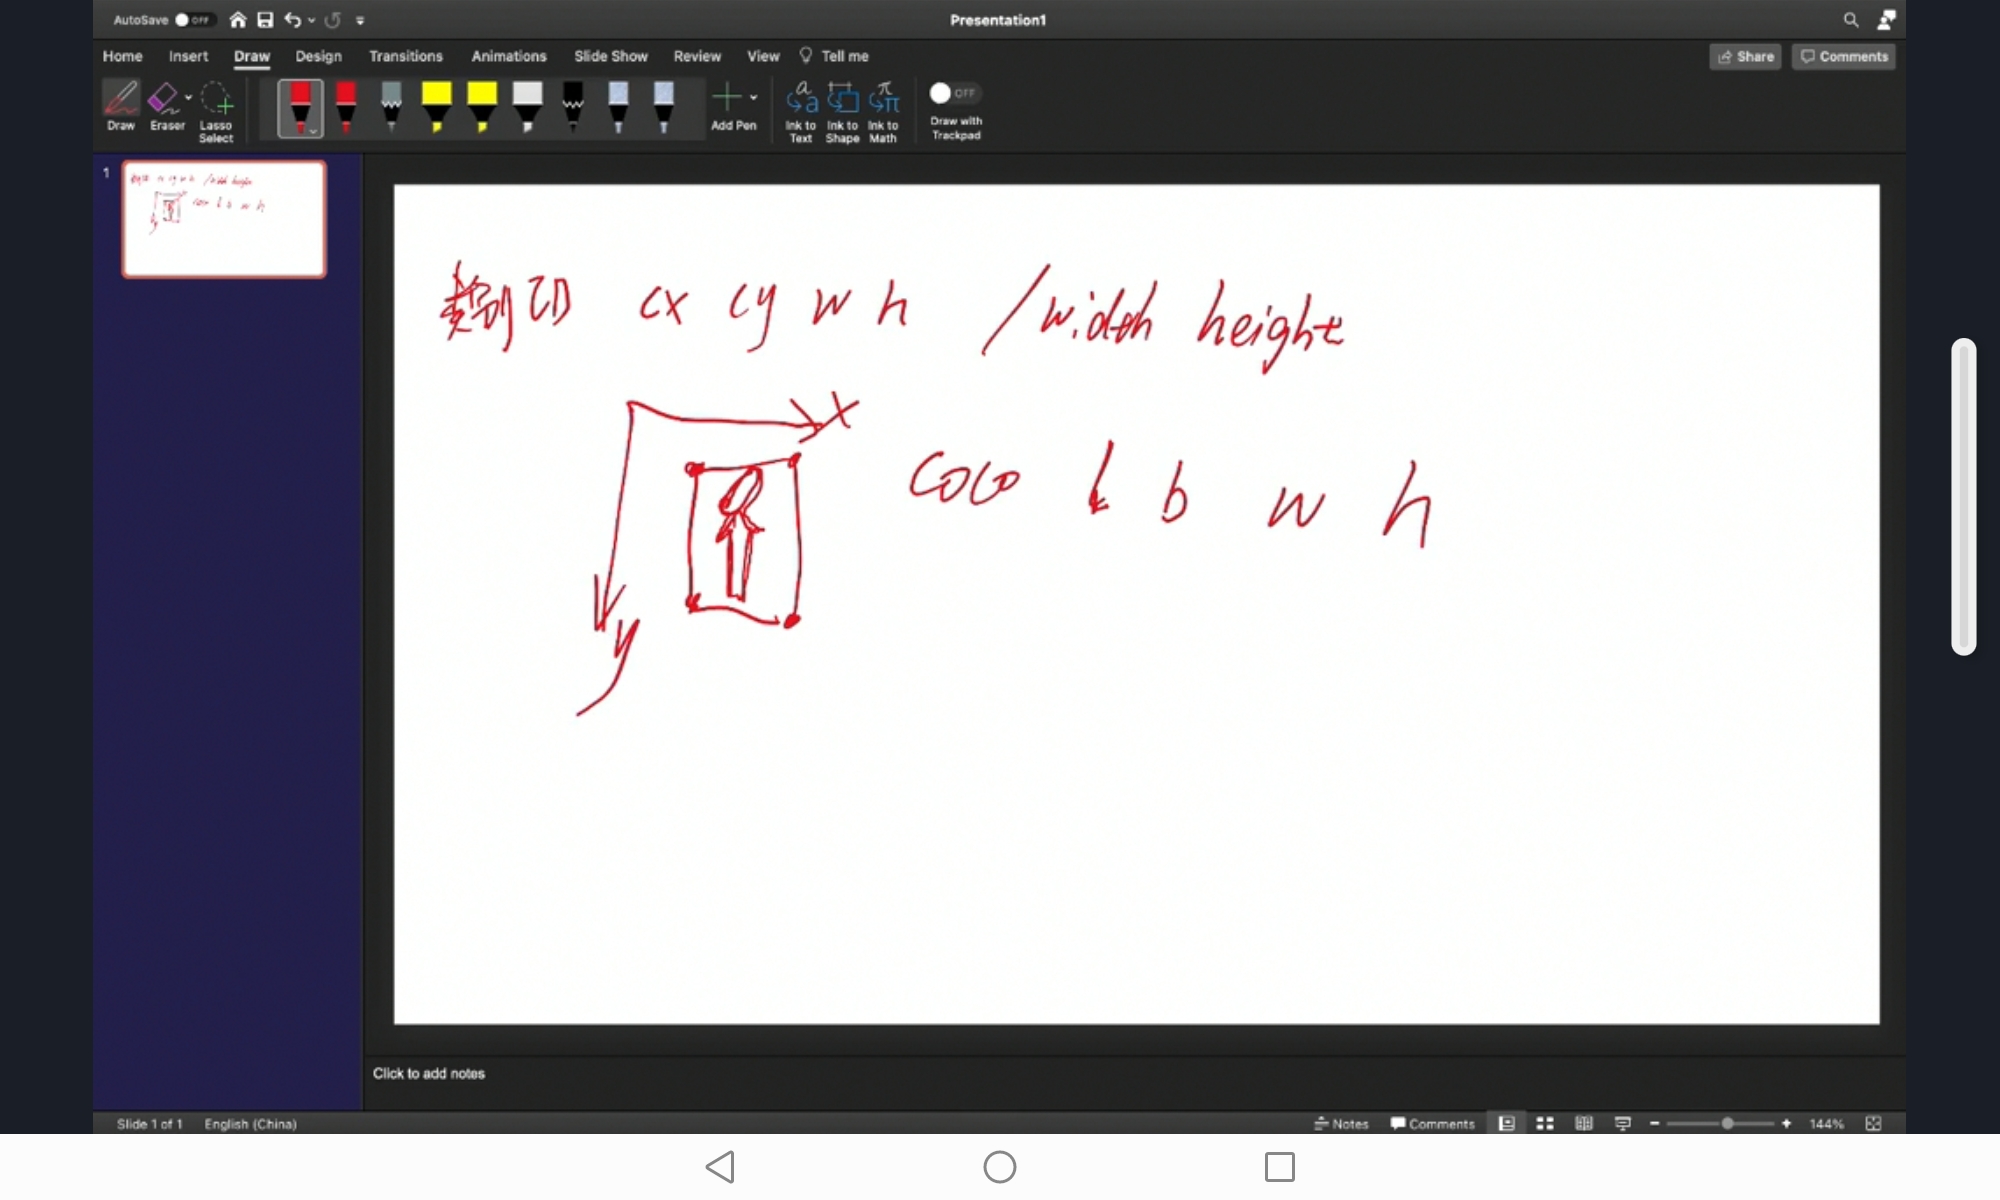 AutoSave OFF Presentation1
Home Insert Draw Design Transitions Animations Slide Show Review View Tell me Share Comments
Draw Eraser Lasso Select Add Pen Ink to Text Ink to Shape Ink to Math OFF Draw with Trackpad
1
类别ID cx cy w h /width height
x
coco l b w h
y
Click to add notes
Slide 1 of 1 English (China) Notes Comments 144%